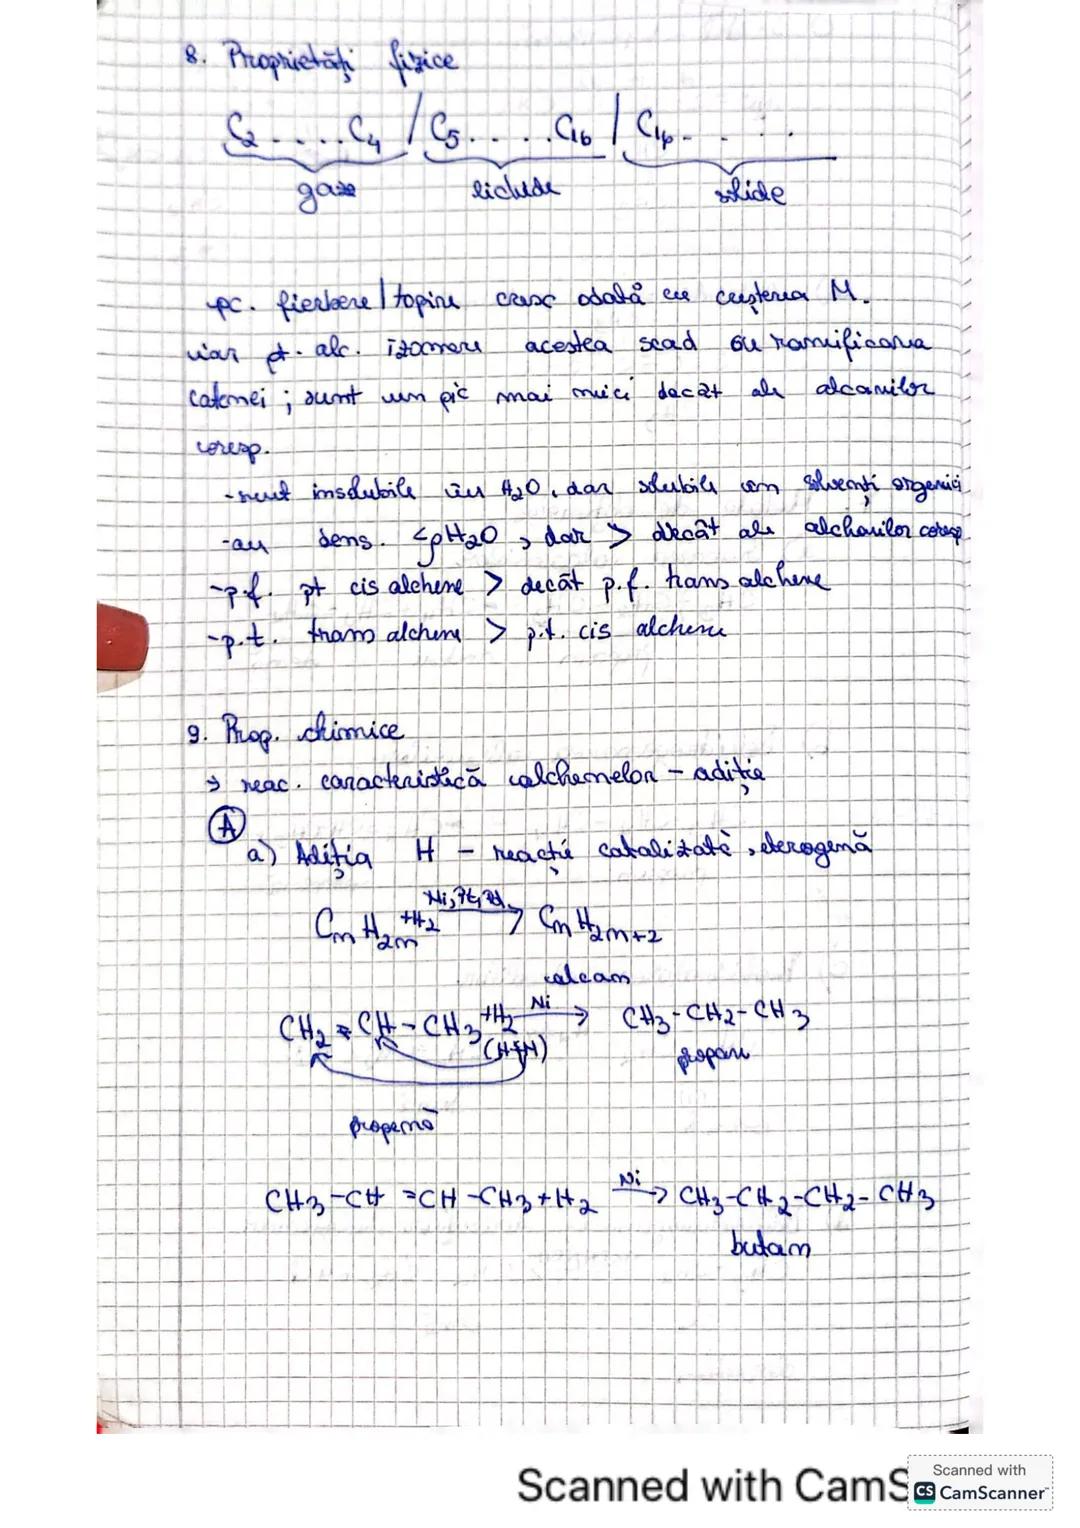 8. Proprietăți fizice
C2 . . . . . C4 / C5 . . . . . C16 / C16 - . . . .
gaze lichide solide
-pc. fierbere / topire cresc odată cu creșterea M.
iar pt. alc. izomere acestea scad cu ramificarea
catenei ; sunt un pic mai mici decât ale alcanilor
coresp.
-sunt insolubile în H2O, dar solubile în solvenți organici
-au dens. < ρH2O , dar > decât ale alchanilor coresp
-p.f. pt cis alchene > decât p.f. trans alchene
-p.t. trans alchene > p.t. cis alchene
9. Prop. chimice
→ reac. caracteristică alchenelor - adiție
A
a) Adiția H - reacție catalizată, eterogenă
CnH2n +H2 Ni, Pt, Pd → CnH2n+2
alcan
CH2 = CH - CH3 +H2 Ni → CH3 - CH2 - CH3
(H-H) propan
propenă
CH3 - CH = CH - CH3 + H2 Ni → CH3 - CH2 - CH2 - CH3
butan
Scanned with CamS
Scanned with
CS CamScanner